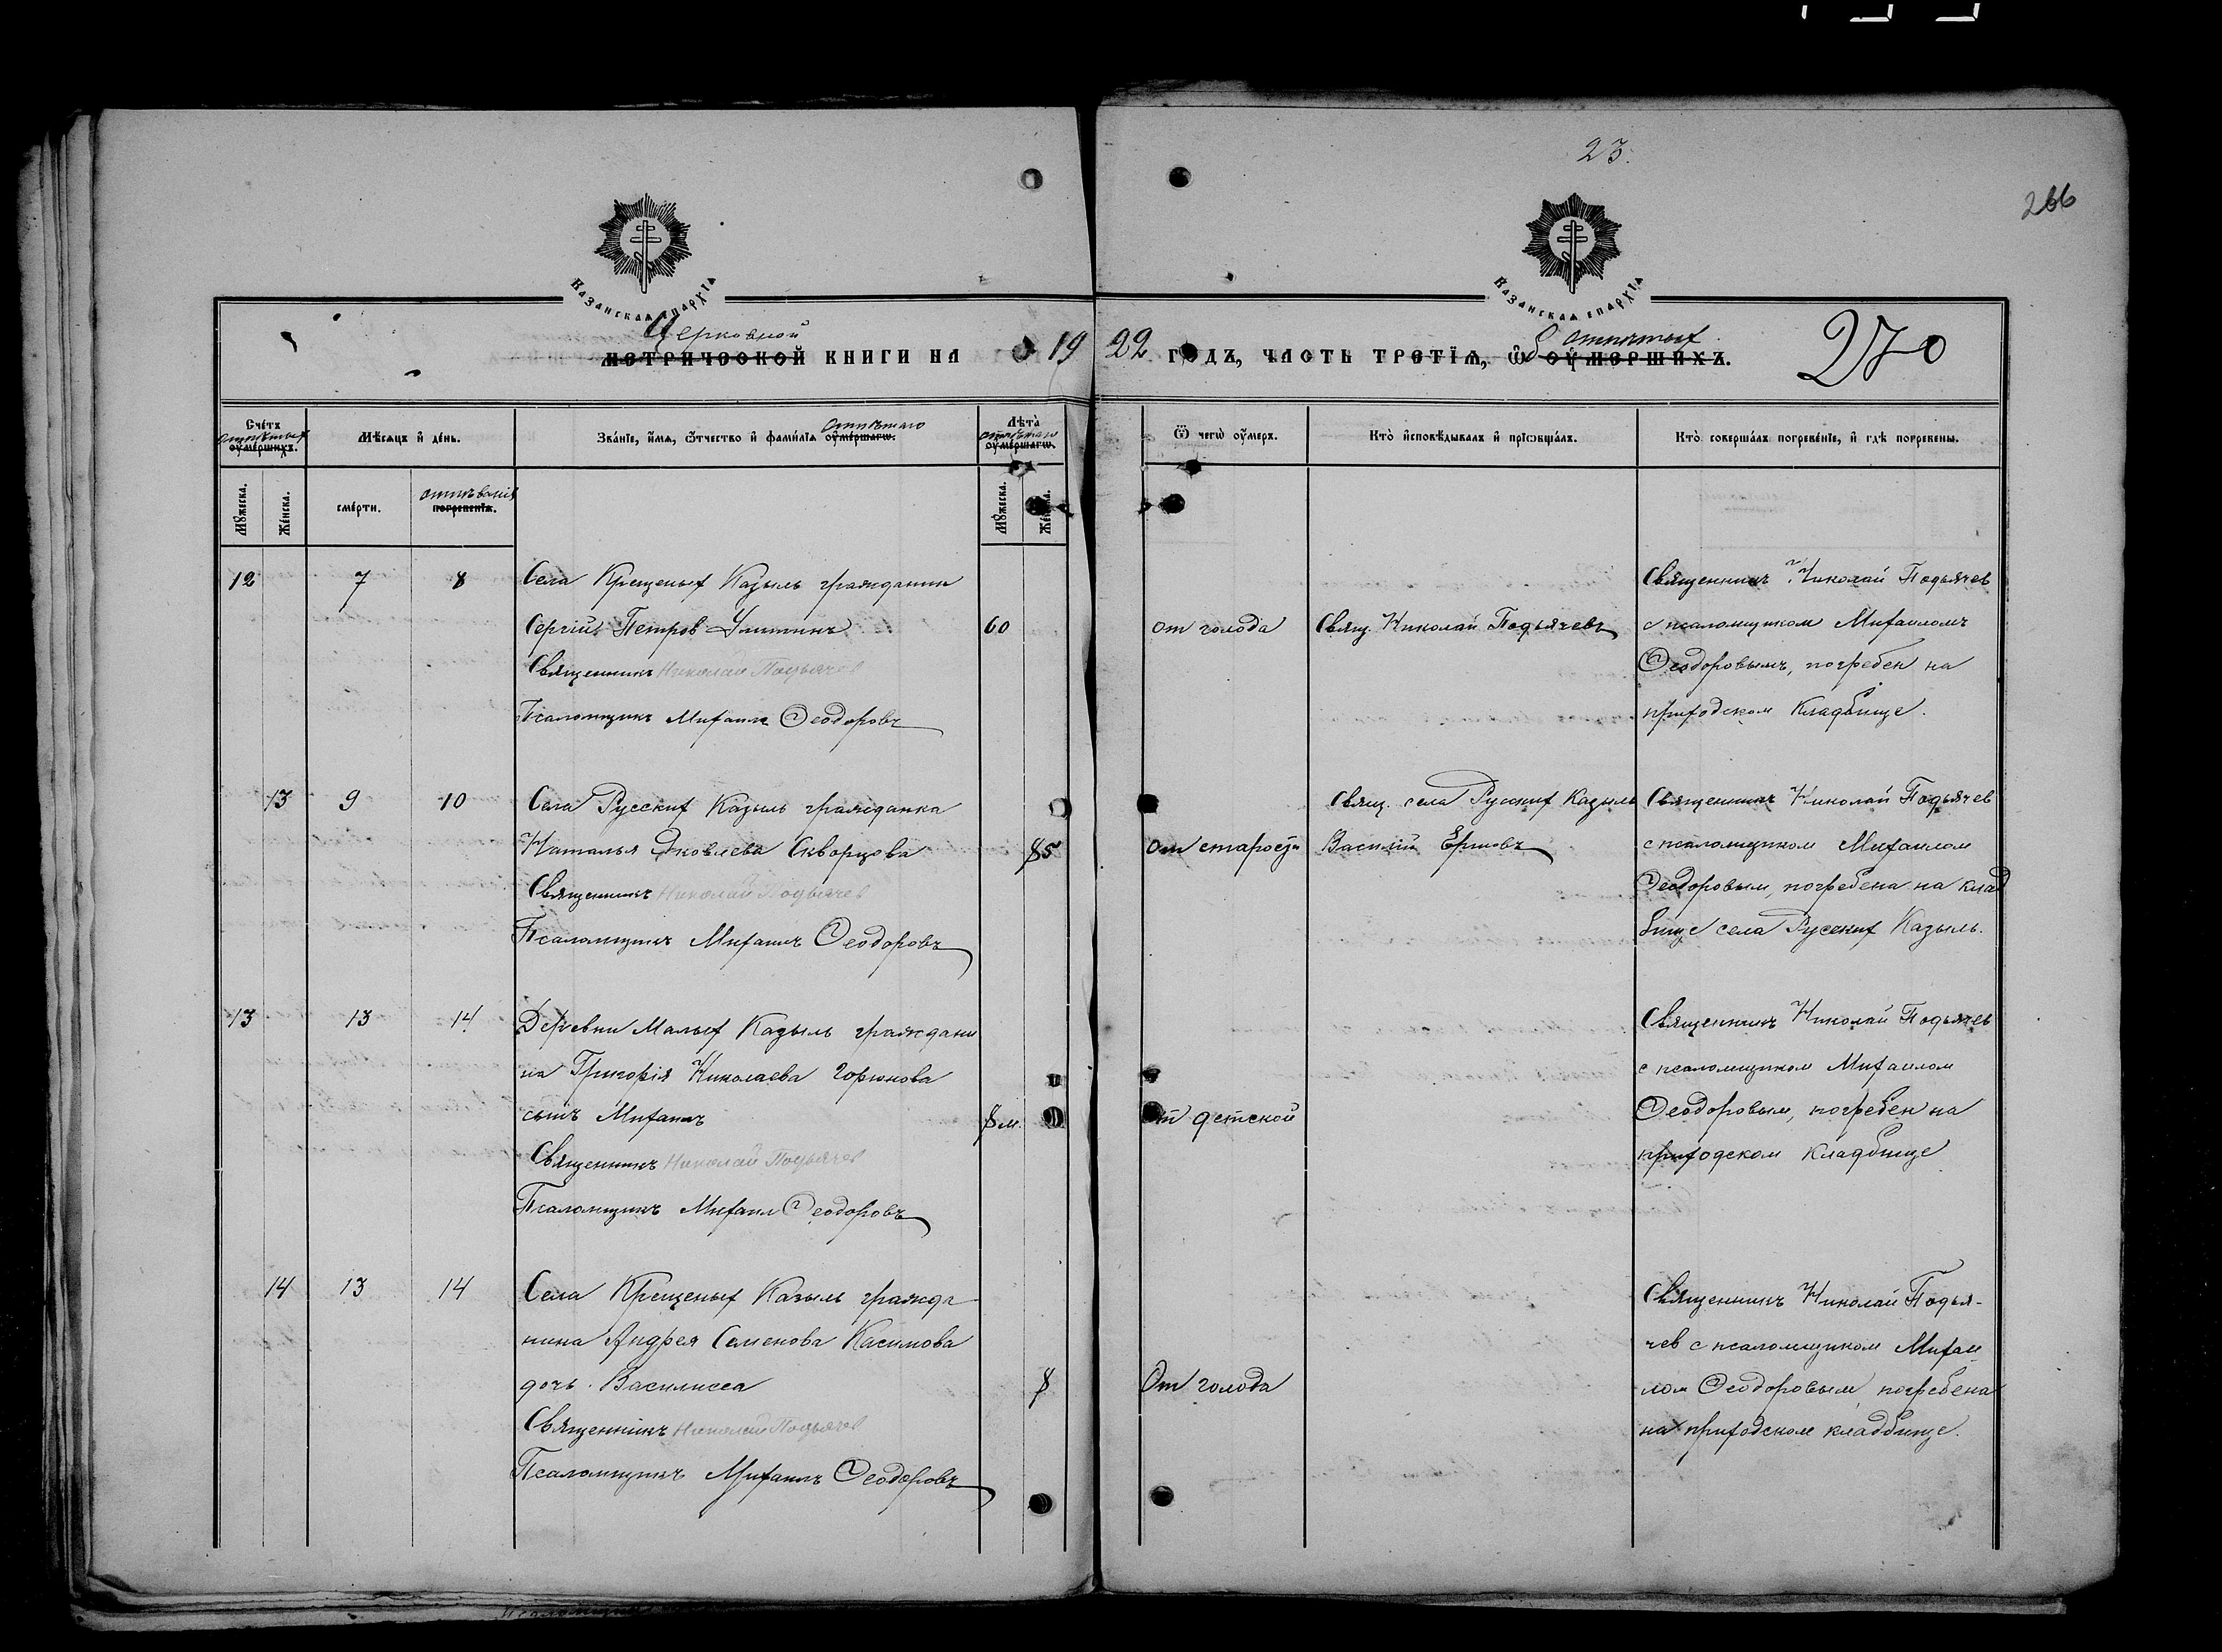 23.
266
Казанская епархїѧ
Казанская епархїѧ
Церковной
метрической книги на 1922 годъ, часть третїѧ, ѡ оумершихъ.
Об отпетых
270
Счетъ оумершихъ.
отпѣтых
Мѣсѧцъ и день.
Званїе, имѧ, ѿчество и фамилїѧ оумершагѡ.
Отпѣтаго
Лѣта оумершагѡ.
отпѣтаго
Ѿ чегѡ оумеръ.
Кто исповѣдывалъ и прїѡбщалъ.
Кто совершалъ погребенїе, и гдѣ погребены.
Мꙋжеска.
Женска.
смерти.
погребенїѧ.
отпѣванія
Мꙋжеска.
Женска.
12 7 8 Села Крещеных Казыль гражданин
Сергій Петров
60
Священникъ Николай Подьячев
Псаломщикъ Михаилъ Феодоровъ
от голода
Свящ. Николай Подьячевъ
Священникъ Николай Подьячев
с псаломщиком Михаиломъ
Феодоровымъ, погребен на
приходском кладбище.
13 9 10 Села Русских Казыль гражданка
Наталья Яковлева Скворцова
85
Священникъ Николай Подьячев
Псаломщикъ Михаилъ Феодоровъ
от старости
Свящ. села Русских Казыль
Василій Ершовъ
Священникъ Николай Подьячев
с псаломщиком Михаилом
Феодоровым, погребена на клад
бище села Русских Казыль.
13 13 14 Деревни Малых Казыль граждани
на Григорія Николаева Горюнова
сынъ Михаилъ
8 м.
Священникъ Николай Подьячев
Псаломщикъ Михаил Феодоровъ
от детской
Священникъ Николай Подьячев
с псаломщиком Михаилом
Феодоровым, погребен на
приходском кладбище
14 13 14 Села Крещеных Казыль гражда-
нина Андрея Семенова Касимова
дочь Василисса
8
Священникъ Николай Подьячев
Псаломщикъ Михаилъ Феодоровъ
От голода
Священникъ Николай Подья-
чев с псаломщиком Михаи
лом Феодоровым погребена
на приходском кладбище.